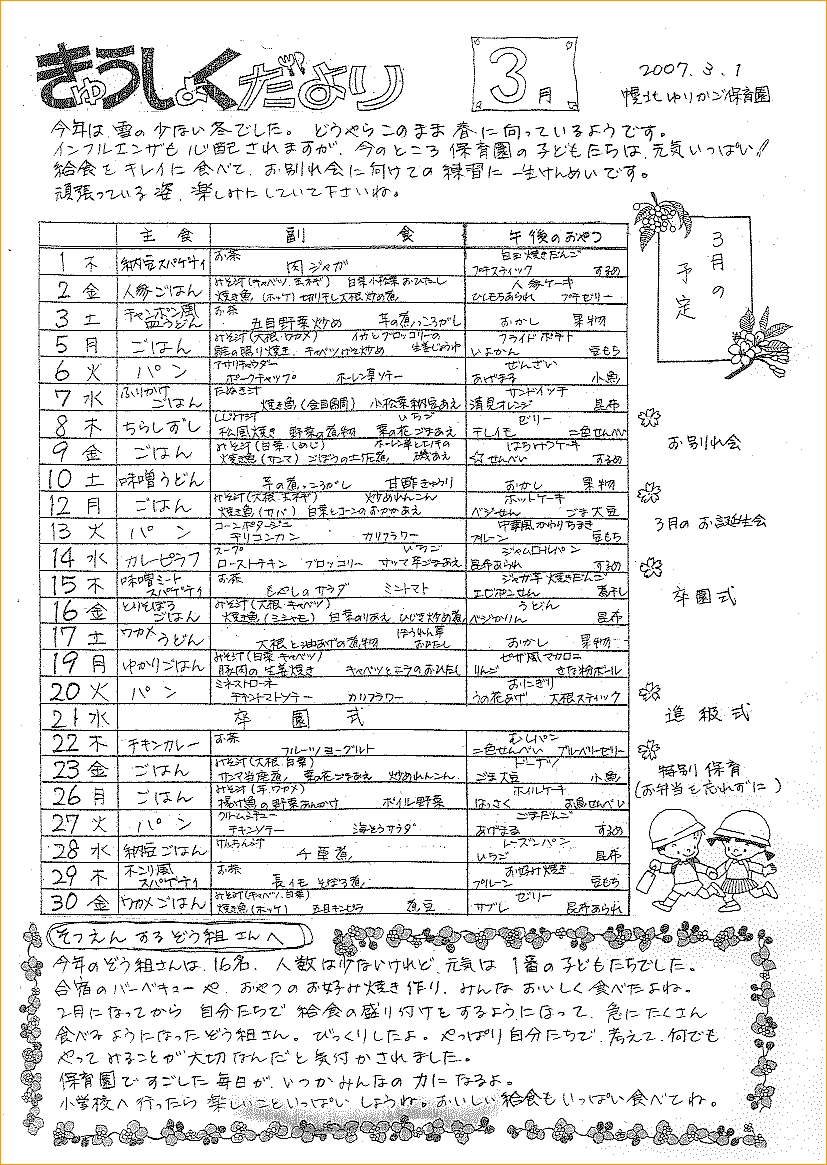 きゅうしょくだより
3月
2007.3.1
幌北ゆりかご保育園
今年は、雪の少ない冬でした。どうやらこのまま春に向っているようです。
インフルエンザも心配されますが、今のところ保育園の子どもたちは、元気いっぱい!!
給食をキレイに食べて、お別れ会に向けての練習に一生けんめいです。
頑張っている姿、楽しみにしていて下さいね。
主食 副食 午後のおやつ
1 木 納豆スパゲティ お茶 肉ジャガ 白玉焼きだんご プチスティック するめ
2 金 人参ごはん みそ汁(キャベツ、玉ネギ) 白菜小松菜おひたし 焼き魚(ホッケ) 切り干し大根炒め煮 人参ケーキ ひしもちあられ プチゼリー
3 土 チャンポン風皿うどん お茶 五目野菜炒め 芋の煮っころがし おかし 果物
5 月 ごはん みそ汁(大根・ワカメ) イカとブロッコリーの生姜じょうゆ 照り焼き キャベツ炒め フライドポテト いよかん 豆もち
6 火 パン アサリチャウダー ポークチャップ ホーレン草ソテー ぜんざい あげまる 小魚
7 水 ふりかけごはん たぬき汁 焼き魚(金目鯛) 小松菜納豆あえ サンドイッチ 清見オレンジ 昆布
8 木 ちらしずし しじみ汁 いちご 松風焼き 野菜の煮物 菜の花ごまあえ ゼリー チレイモ 二色せんべい
9 金 ごはん みそ汁(白菜・しめじ) 焼き魚(サンマ) ごぼうの土佐煮 磯あえ はちみつケーキ ☆せんべい するめ
10 土 味噌うどん 芋の煮っころがし 甘酢きゅうり おかし 果物
12 月 ごはん みそ汁(大根・玉ネギ) 炒めれんこん 焼き魚(サバ) 白菜とコーンのおかかあえ ホットケーキ ベジせん ごま大豆
13 火 パン コーンポタージュ チリコンカン カリフラワー 中華風かわりちまき プルーン 豆もち
14 水 カレーピラフ スープ いちご ローストチキン ブロッコリー サツマ芋ごまあえ ジャムロールパン 昆布あられ するめ
15 木 味噌ミートスパゲティ お茶 もやしのサラダ ミニトマト ジャガ芋焼きだんご エビポンせん 煮干し
16 金 とりそぼろごはん みそ汁(大根・キャベツ) 焼き魚(シシャモ) 白菜のりあえ ひじき炒め煮 うどん ベジかりん 昆布
17 土 ワカメうどん 大根と油あげの煮物 ほうれん草おひたし おかし 果物
19 月 ゆかりごはん みそ汁(白菜・キャベツ) 豚肉の生姜焼き キャベツとニラのおひたし ピザ風マカロニ りんご きな粉ボール
20 火 パン ミネストローネ チキントマトソテー カリフラワー おにぎり うの花あげ 大根スティック
21 水 卒園式
22 木 チキンカレー お茶 フルーツヨーグルト むしパン 二色せんべい ブルーベリーゼリー
23 金 ごはん みそ汁(大根・白菜) サンマ当座煮 菜の花ごまあえ 炒めれんこん ドーナツ ごま大豆 小魚
26 月 ごはん みそ汁(芋、ワカメ) 揚げ魚の野菜あんかけ ボイル野菜 ホイルケーキ はっさく お魚せんべい
27 火 パン クリームシチュー チキンソテー 海そうサラダ ごまだんご あげまる するめ
28 水 納豆ごはん けんちん汁 千草煮 レーズンパン いちご 昆布
29 木 ナポリ風スパゲティ お茶 長イモそぼろ煮 お好み焼き プルーン 豆もち
30 金 ワカメごはん みそ汁(キャベツ、白菜) 焼き魚(ホッケ) 五目キンピラ 煮豆 ゼリー サブレ 昆布あられ
3月の予定
お別れ会
3月のお誕生会
卒園式
進級式
特別保育
(お弁当を忘れずに)
そつえんするぞう組さんへ
今年のぞう組さんは、16名、人数は少ないけれど、元気は1番の子どもたちでした。
合宿のバーベキューや、おやつのお好み焼き作り、みんなおいしく食べたよね。
2月になってから自分たちで給食の盛り付けをするようになって、急にたくさん
食べるようになったぞう組さん。びっくりしたよ。やっぱり自分たちで、考えて、何でも
やってみることが大切なんだと気付かされました。
保育園ですごした毎日が、いつかみんなの力になるよ。
小学校へ行ったら楽しいこといっぱいしようね。おいしい給食もいっぱい食べてね。